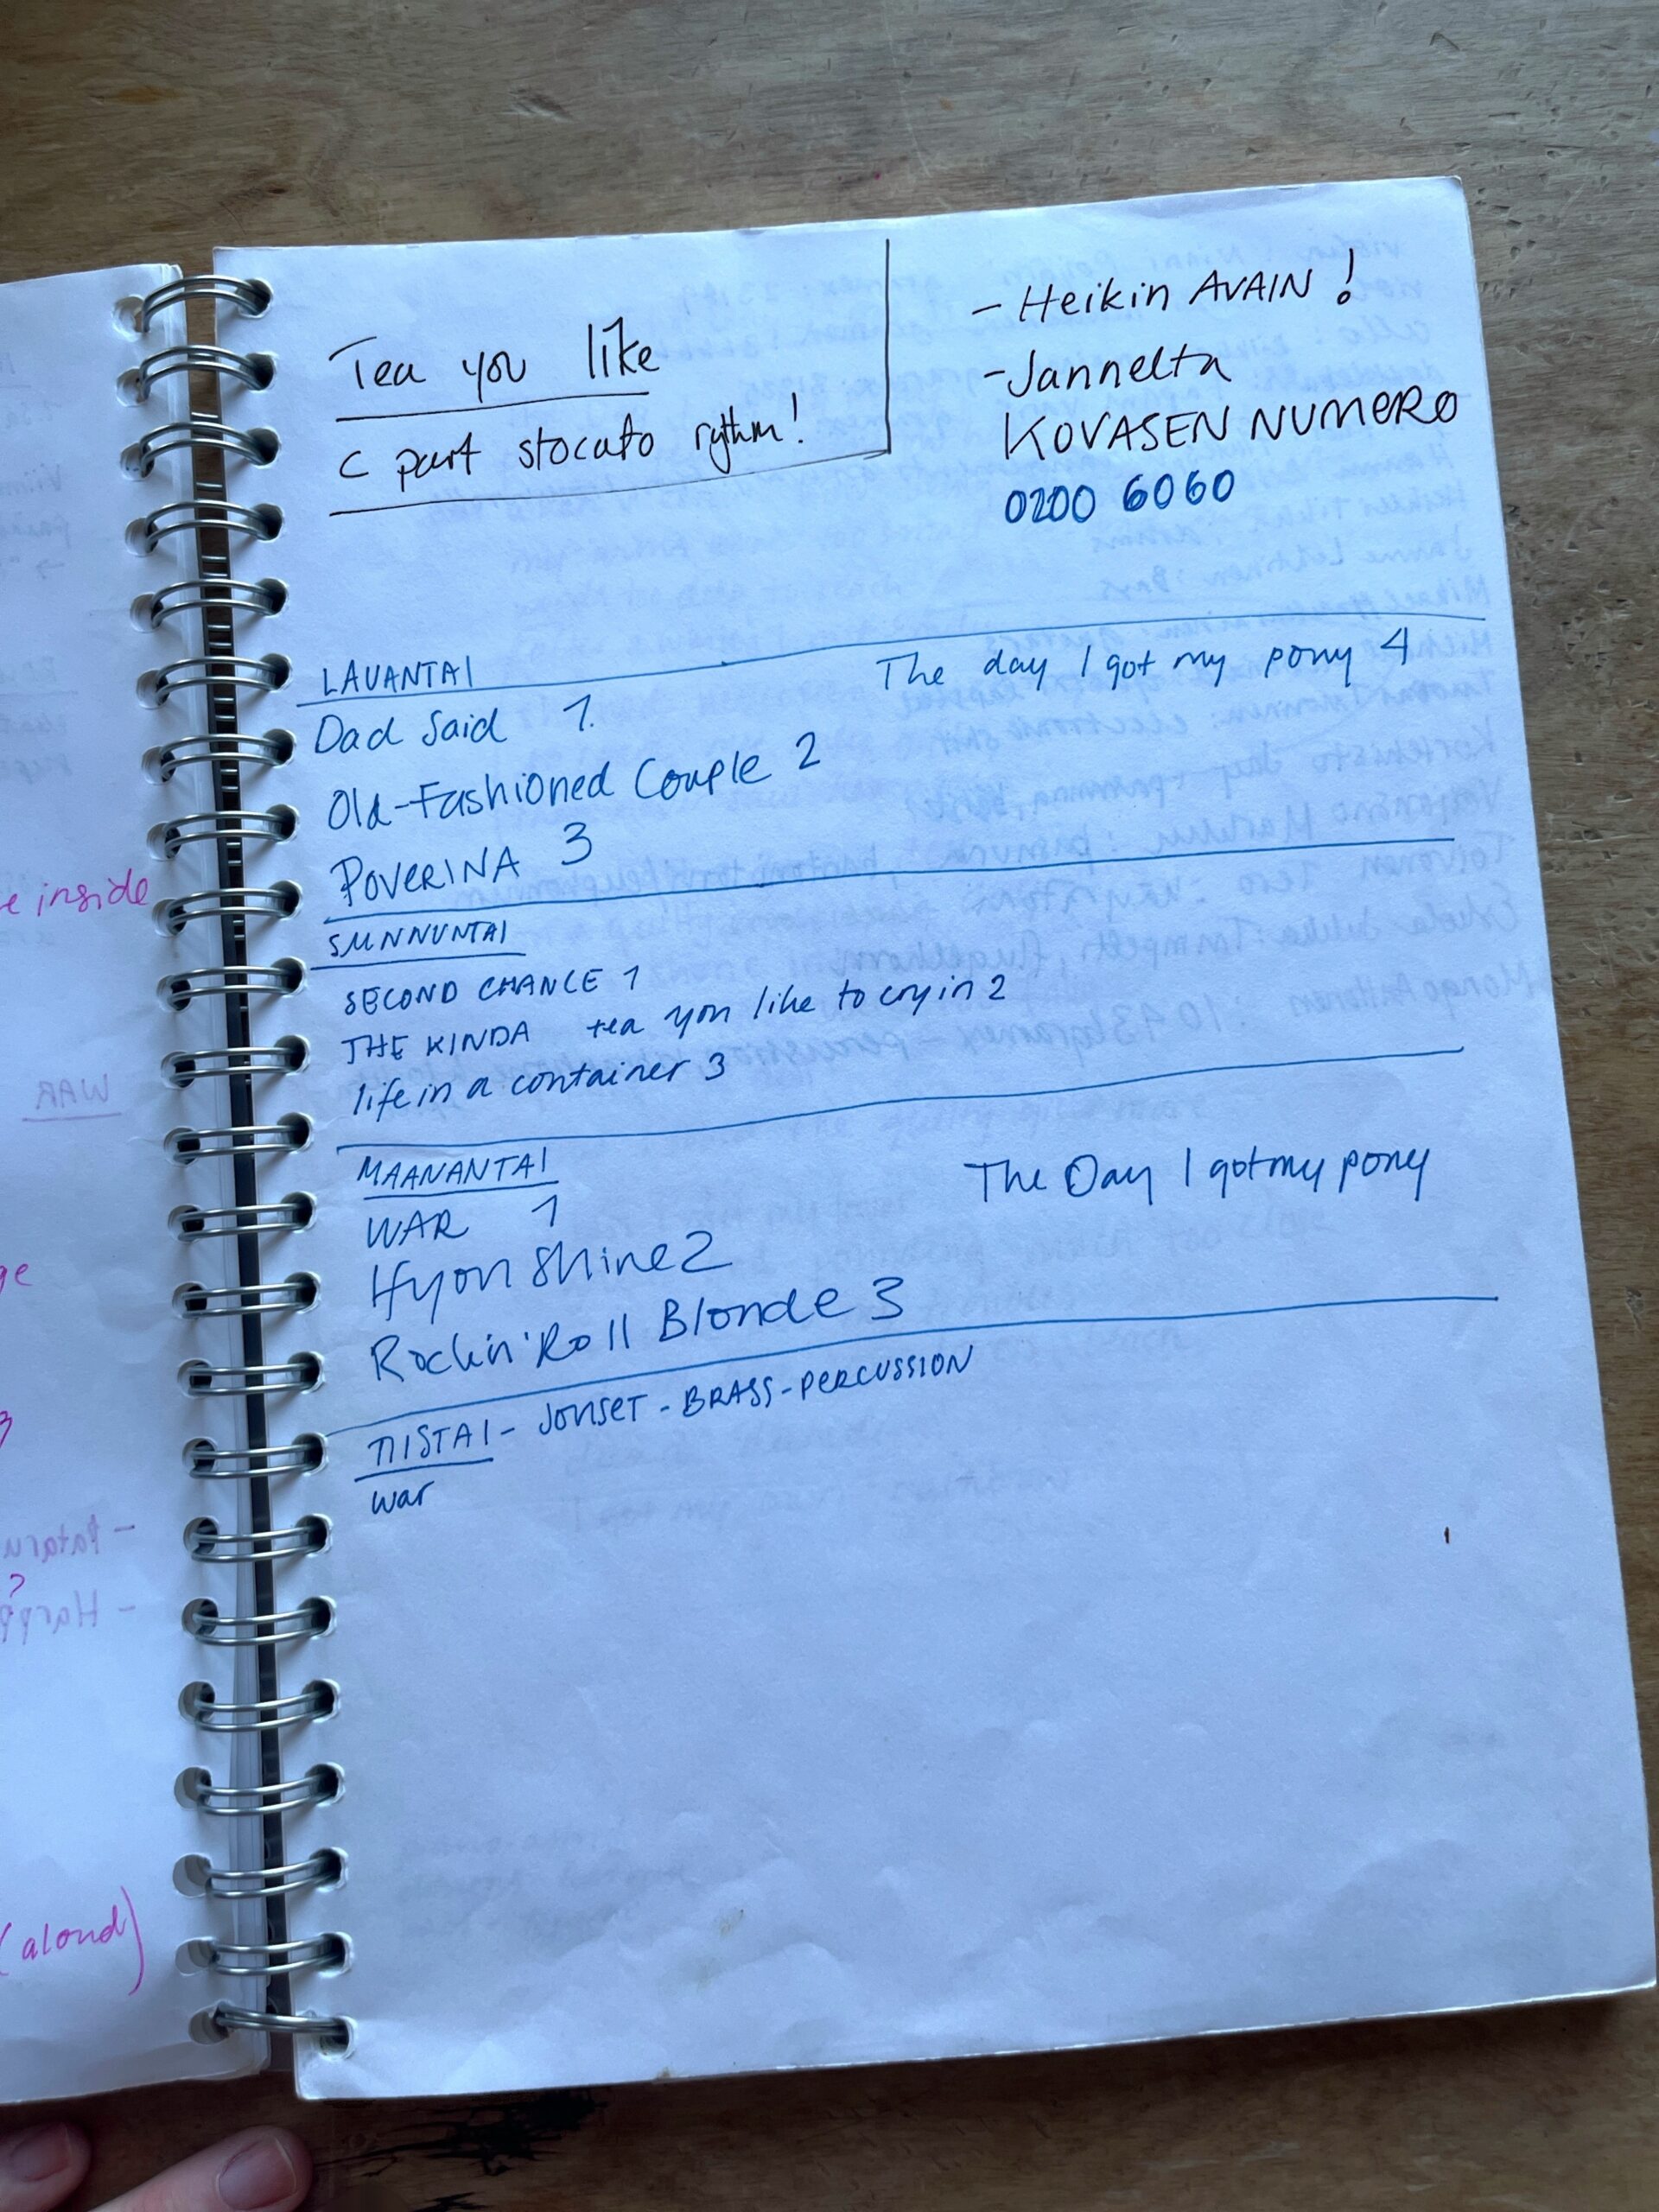 Tea you like
C part stocato rythm!
- Heikin AVAIN!
- Jannelta
KOVASEN NUMERO
0200 6060
LAUANTAI
The day I got my pony 4
Dad Said 1.
Old-Fashioned Couple 2
POVERINA 3
SUNNUNTAI
SECOND CHANCE 1
THE KINDA tea you like to cry in 2
life in a container 3
MAANANTAI
The Day I got my pony
WAR 1
If you Shine 2
Rockin' Roll Blonde 3
TIISTAI - JOUSET - BRASS - PERCUSSION
war
e inside
WAR
ge
3
(aloud)